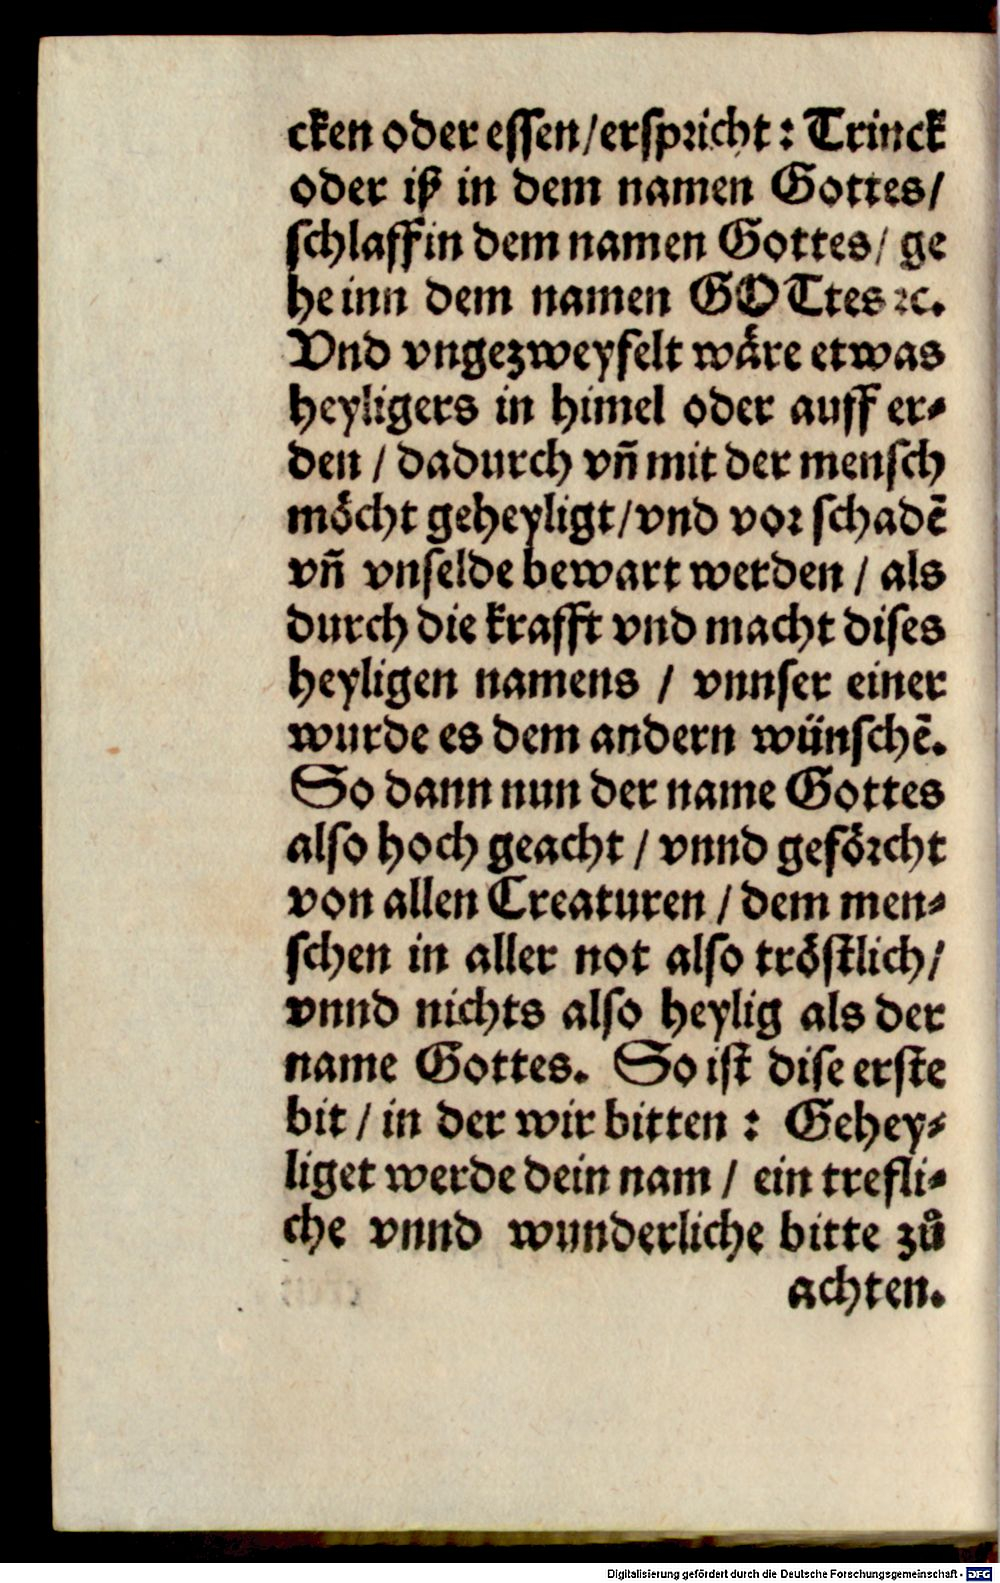 cken oder essen/erspricht: Trinck
oder iß in dem namen Gottes/
schlaff in dem namen Gottes/ ge
he inn dem namen GOTtes ꝛc.
Vnd vngezweyfelt wåre etwas
heyligers in himel oder auff er⸗
den / dadurch vñ mit der mensch
möcht geheyligt/vnd vor schadẽ
vñ vnselde bewart werden / als
durch die krafft vnd macht dises
heyligen namens / vnnser einer
wurde es dem andern wünschẽ.
So dann nun der name Gottes
also hoch geacht / vnnd geförcht
von allen Creaturen / dem men⸗
schen in aller not also tröstlich/
vnnd nichts also heylig als der
name Gottes. So ist dise erste
bit / in der wir bitten : Gehey⸗
liget werde dein nam / ein trefli⸗
che vnnd wunderliche bitte zů
achten.
Digitalisierung gefördert durch die Deutsche Forschungsgemeinschaft - DFG